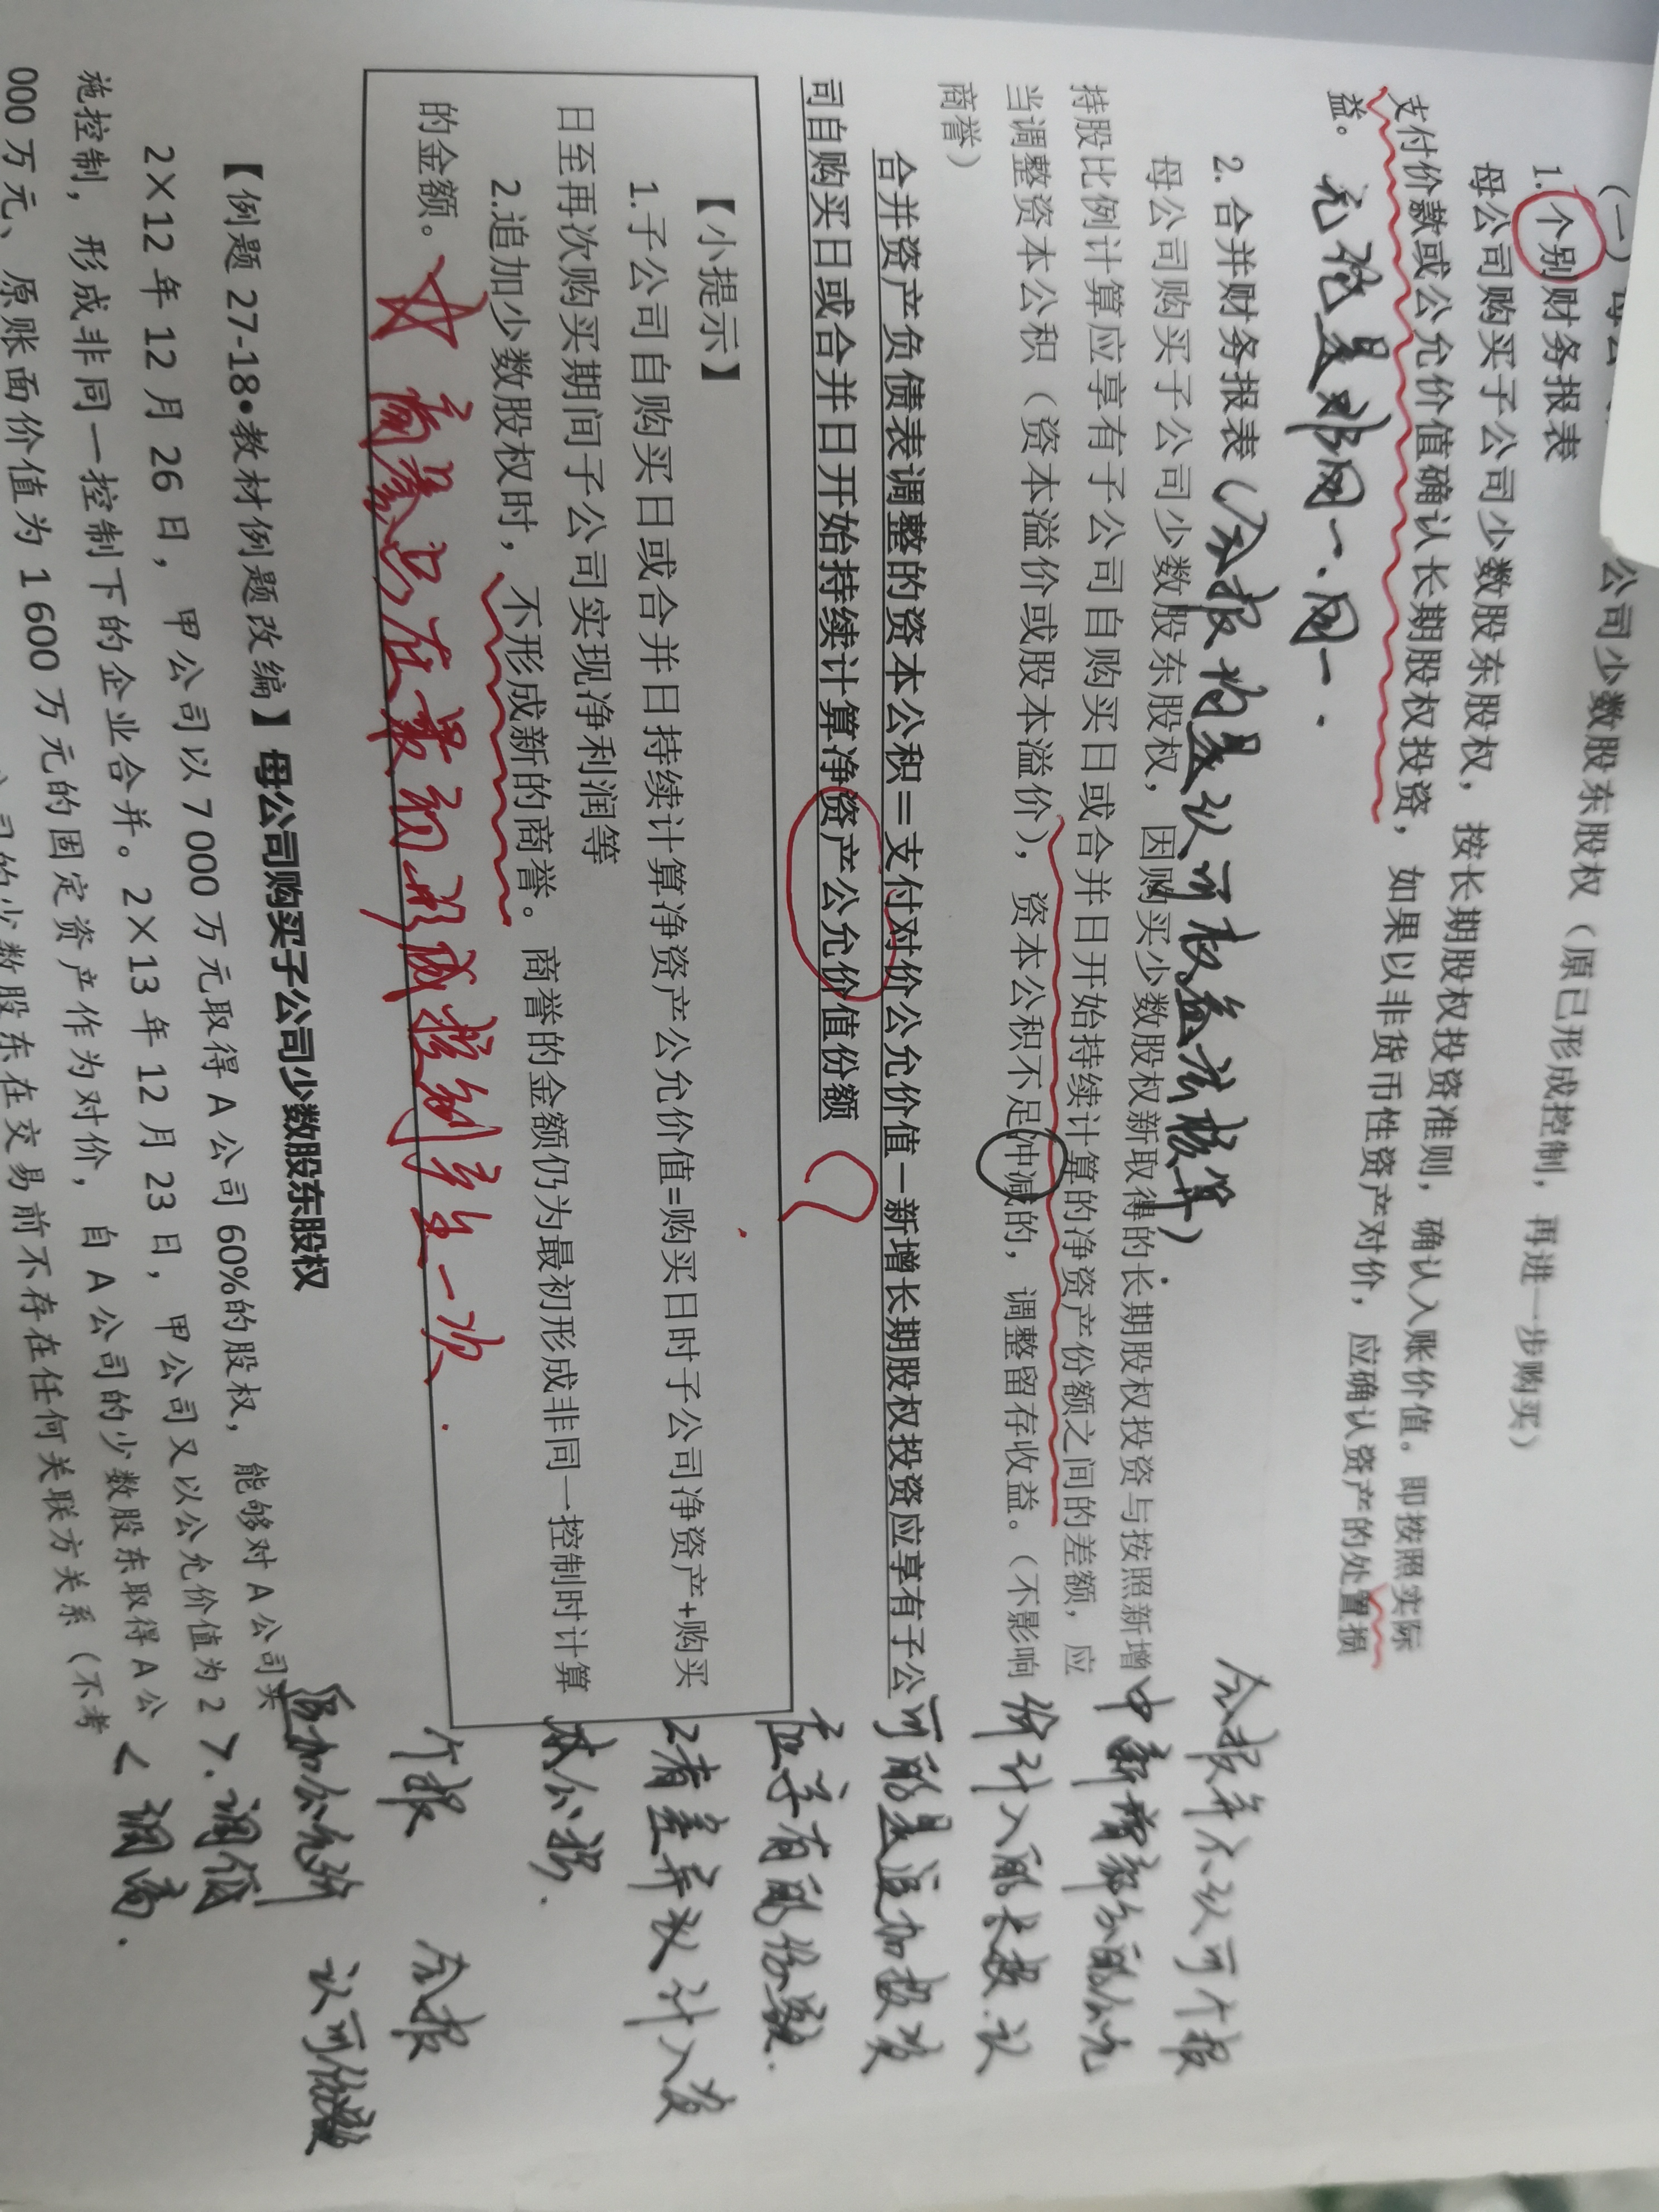 公司少数股东股权（原已形成控制，再进一步购买）
1.个别财务报表
母公司购买子公司少数股东股权，按长期股权投资准则，确认入账价值。即按照实际
支付价款或公允价值确认长期股权投资，如果以非货币性资产对价，应确认资产的处置损
益。无论是非同一、同一.
2.合并财务报表（合报均是认可权益法核算）
母公司购买子公司少数股东股权，因购买少数股权新取得的长期股权投资与按照新增
持股比例计算应享有子公司自购买日或合并日开始持续计算的净资产份额之间的差额，应
当调整资本公积（资本溢价或股本溢价），资本公积不足冲减的，调整留存收益。（不影响
商誉）
合并资产负债表调整的资本公积＝支付对价公允价值－新增长期股权投资应享有子公
司自购买日或合并日开始持续计算净资产公允价值份额
【小提示】
1.子公司自购买日或合并日持续计算净资产公允价值=购买日时子公司净资产+购买
日至再次购买期间子公司实现净利润等
2.追加少数股权时，不形成新的商誉。商誉的金额仍为最初形成非同一控制时计算
的金额。
☆商誉只在最初形成控制产生一次.
【例题 27-18•教材例题改编】母公司购买子公司少数股东股权
2×12 年 12 月 26 日，甲公司以 7 000 万元取得 A 公司 60%的股权，能够对 A 公司实
施控制，形成非同一控制下的企业合并。2×13 年 12 月 23 日，甲公司又以公允价值为 2
000 万元、原账面价值为 1 600 万元的固定资产作为对价，自 A 公司的少数股东取得 A 公
司的少数股东在交易前不存在任何关联方关系（不考
合报并不认可个报
中新增部分的公允
价计入的长投.认
可的是追加投资
应享有的份额.
2者差异议计入资
本公积.
个报 合报
追加公允价 认可份额
>.调低
<调高.